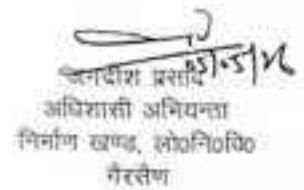 जगदीश प्रसाद
अधिशासी अभियन्ता
निर्माण खण्ड, लो०नि०वि०
गैरसैण